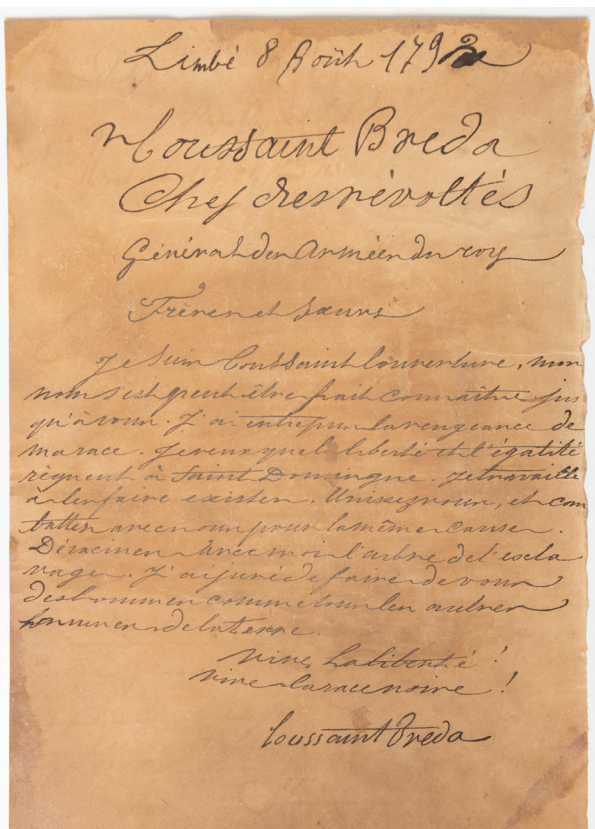 Limbé 8 Août 1792
Toussaint Breda
Chef des révoltés
Général des Armées du roy
Frères et Sœurs
Je suis Toussaint Louverture, mon
nom s'est peut être fait connaître jus
qu'à vous. J'ai entrepris la vengeance de
ma race. Je veux que la liberté et l'égalité
règnent à Saint Domingue. Je travaille
à les faire exister. Unissez vous, et com
battez avec nous pour la même cause.
Déracinez avec moi l'arbre de l'escla
vage. J'ai juré de faire de vous
des hommes comme tous les autres
hommes de la terre.
Vive la liberté !
Vive la race noire !
Toussaint Breda